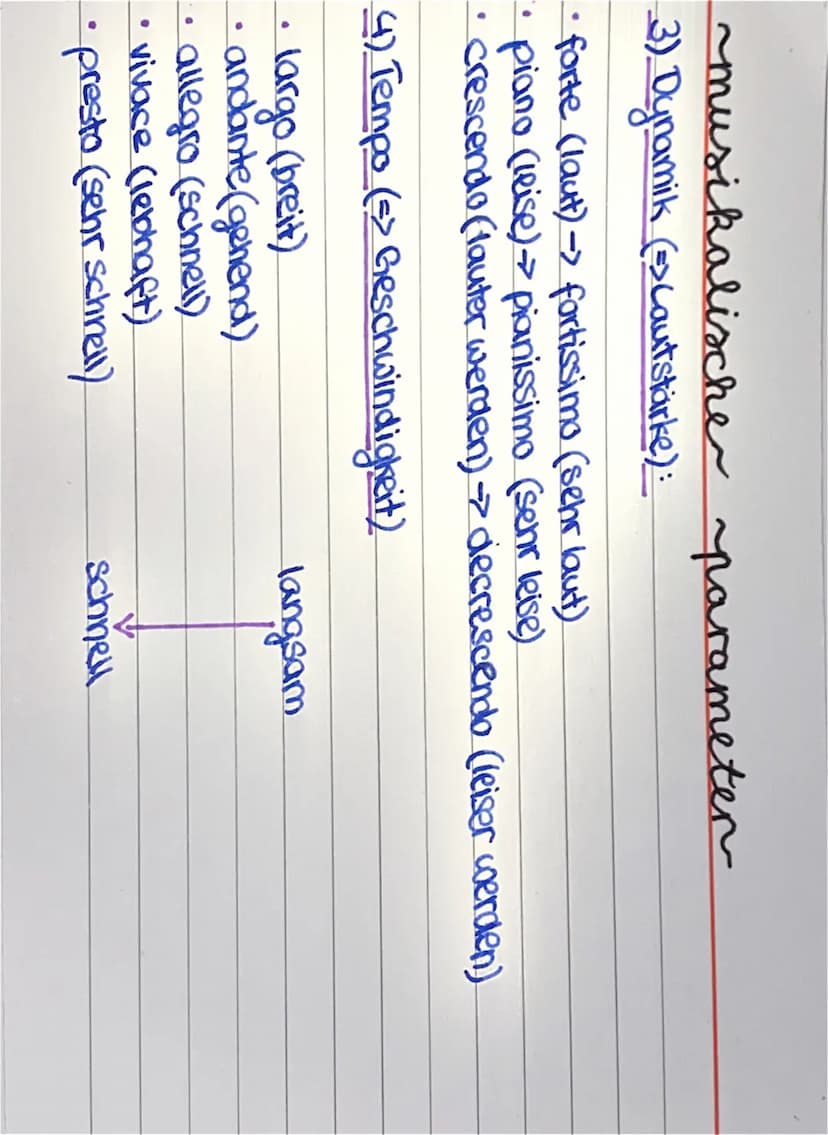 ~musikalische~ ~parameter~
3) Dynamik (=> Lautstärke):
• forte (laut) -> fortissimo (sehr laut)
• piano (leise) -> pianissimo (sehr leise)
• crescendo (lauter werden) -> decrescendo (leiser werden)
4) Tempo (=> Geschwindigkeit)
• largo (breit) langsam
• andante (gehend)
• allegro (schnell)
• vivace (lebhaft)
• presto (sehr schnell) schnell